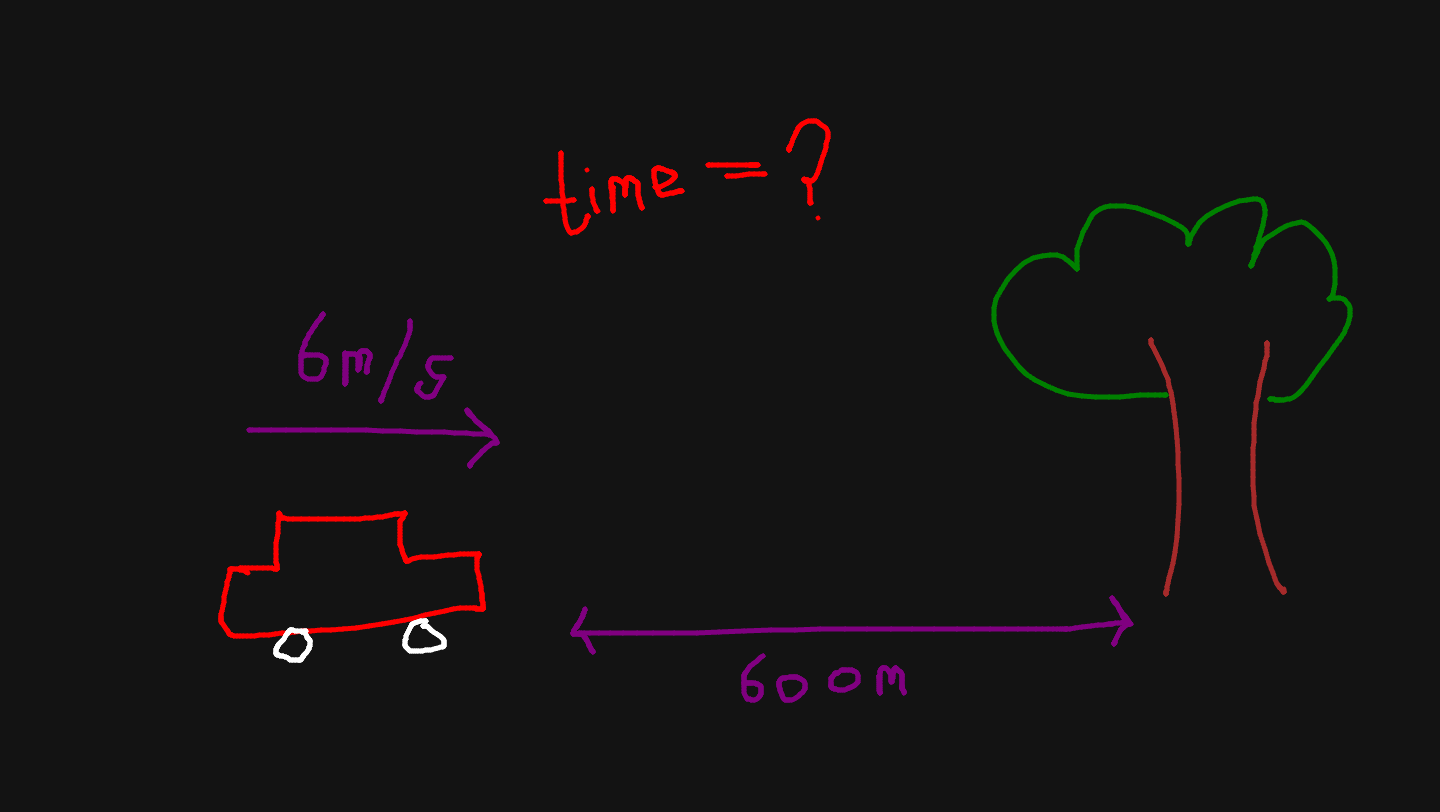 time = ?
6m/s
600m